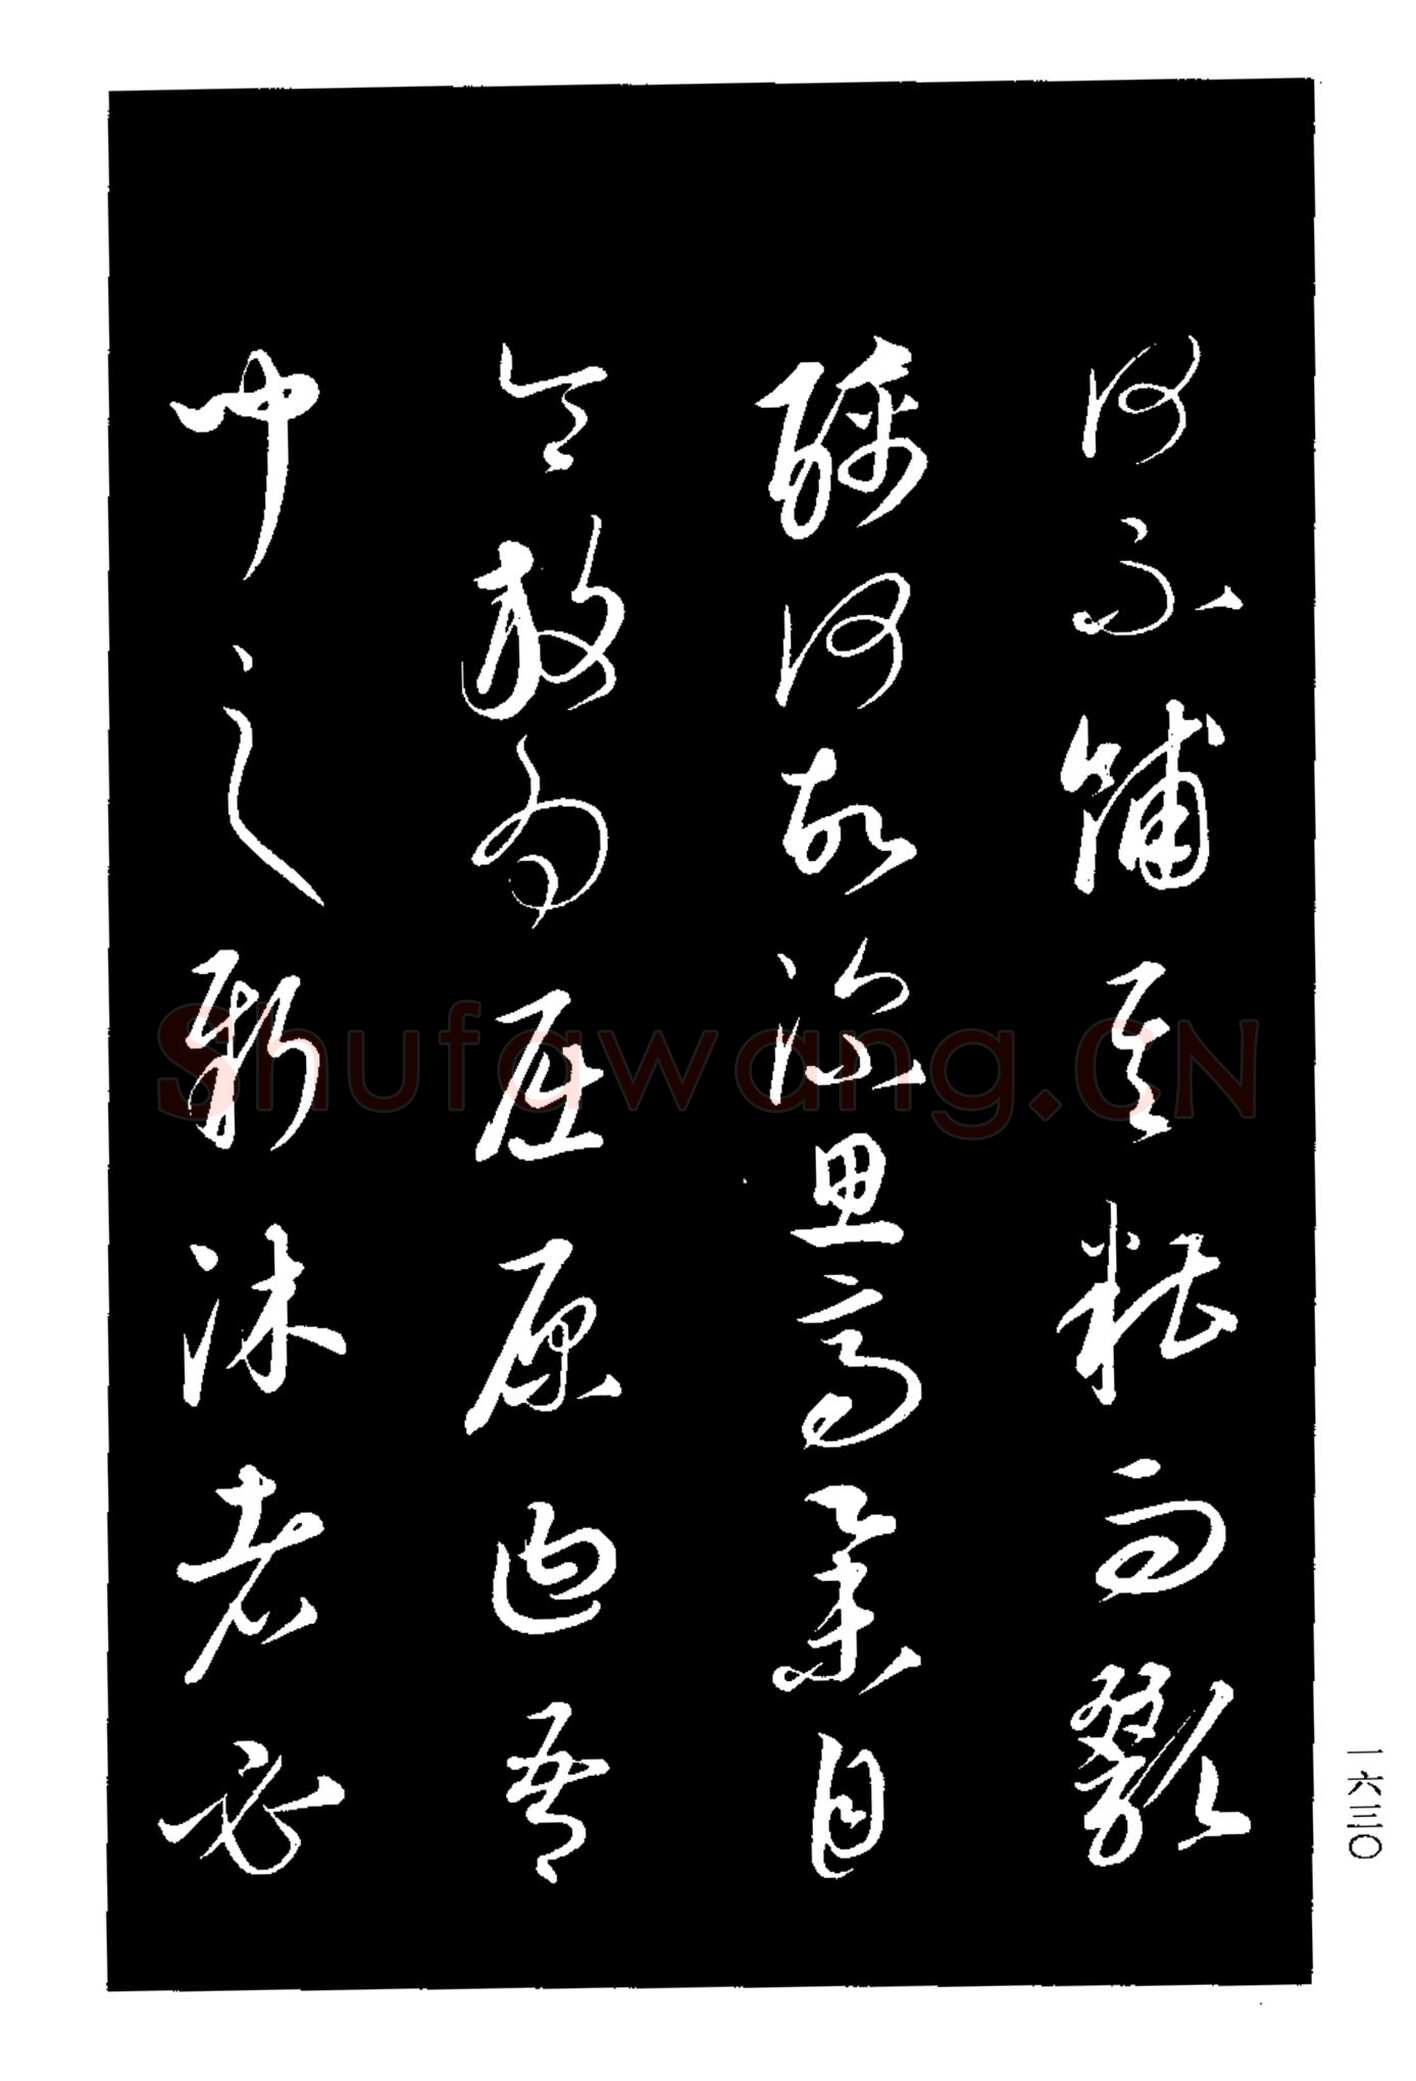 何不餔其糟而歠
醨何故深思高舉自
令放為屈原曰吾
聞之新沐者必
一六三〇
Shufawang.CN